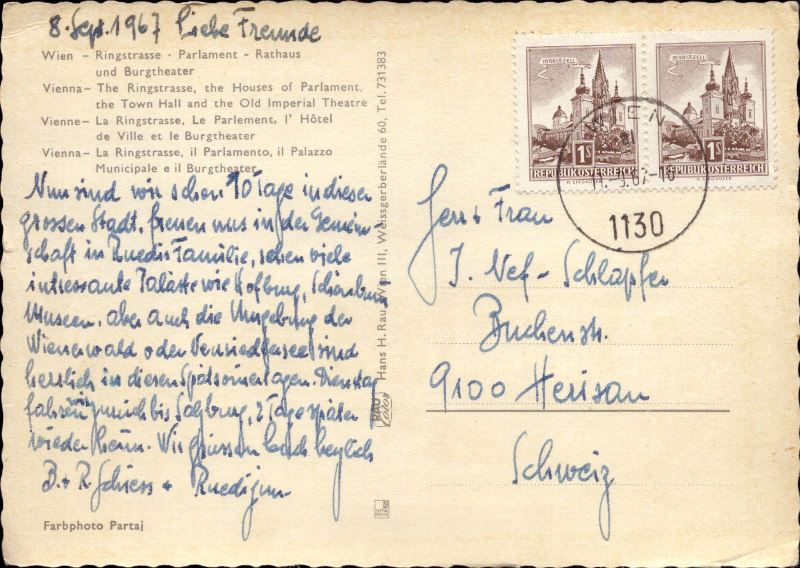 8. Sept. 1967 Liebe Freunde
Wien – Ringstrasse · Parlament – Rathaus
und Burgtheater
Vienna – The Ringstrasse, the Houses of Parlament,
the Town Hall and the Old Imperial Theatre
Vienne – La Ringstrasse, Le Parlement, l' Hôtel
de Ville et le Burgtheater
Vienna – La Ringstrasse, il Parlamento, il Palazzo
Municipale e il Burgtheater
Nun sind wir schon 10 Tage in dieser
grossen Stadt, freuen uns in der Gemein-
schaft in Ruedis Familie, sehen viele
interssante Paläste wie Hofburg, Schönbrunn
Museen. aber auch die Umgebung der
Wienerwald oder Neusiedlersee sind
herrlich in diesen Spätsommertagen. Dienstag
fahren wir zurück bis Salzburg, 2 Tage später
wieder heim. Wir grüssen Euch herzlich
B. + R. Schiess +
Farbphoto Partaj
Hans H. Rau, Wien III, Weissgerberlände 60, Tel. 731383
RAU
Color
MARIAZELL
1S
REPUBLIK ÖSTERREICH
MARIAZELL
1S
REPUBLIK ÖSTERREICH
WIEN
1130
Herr + Frau
J. Nef-Schläpfer
Buchenstr.
9100 Herisau
Schweiz